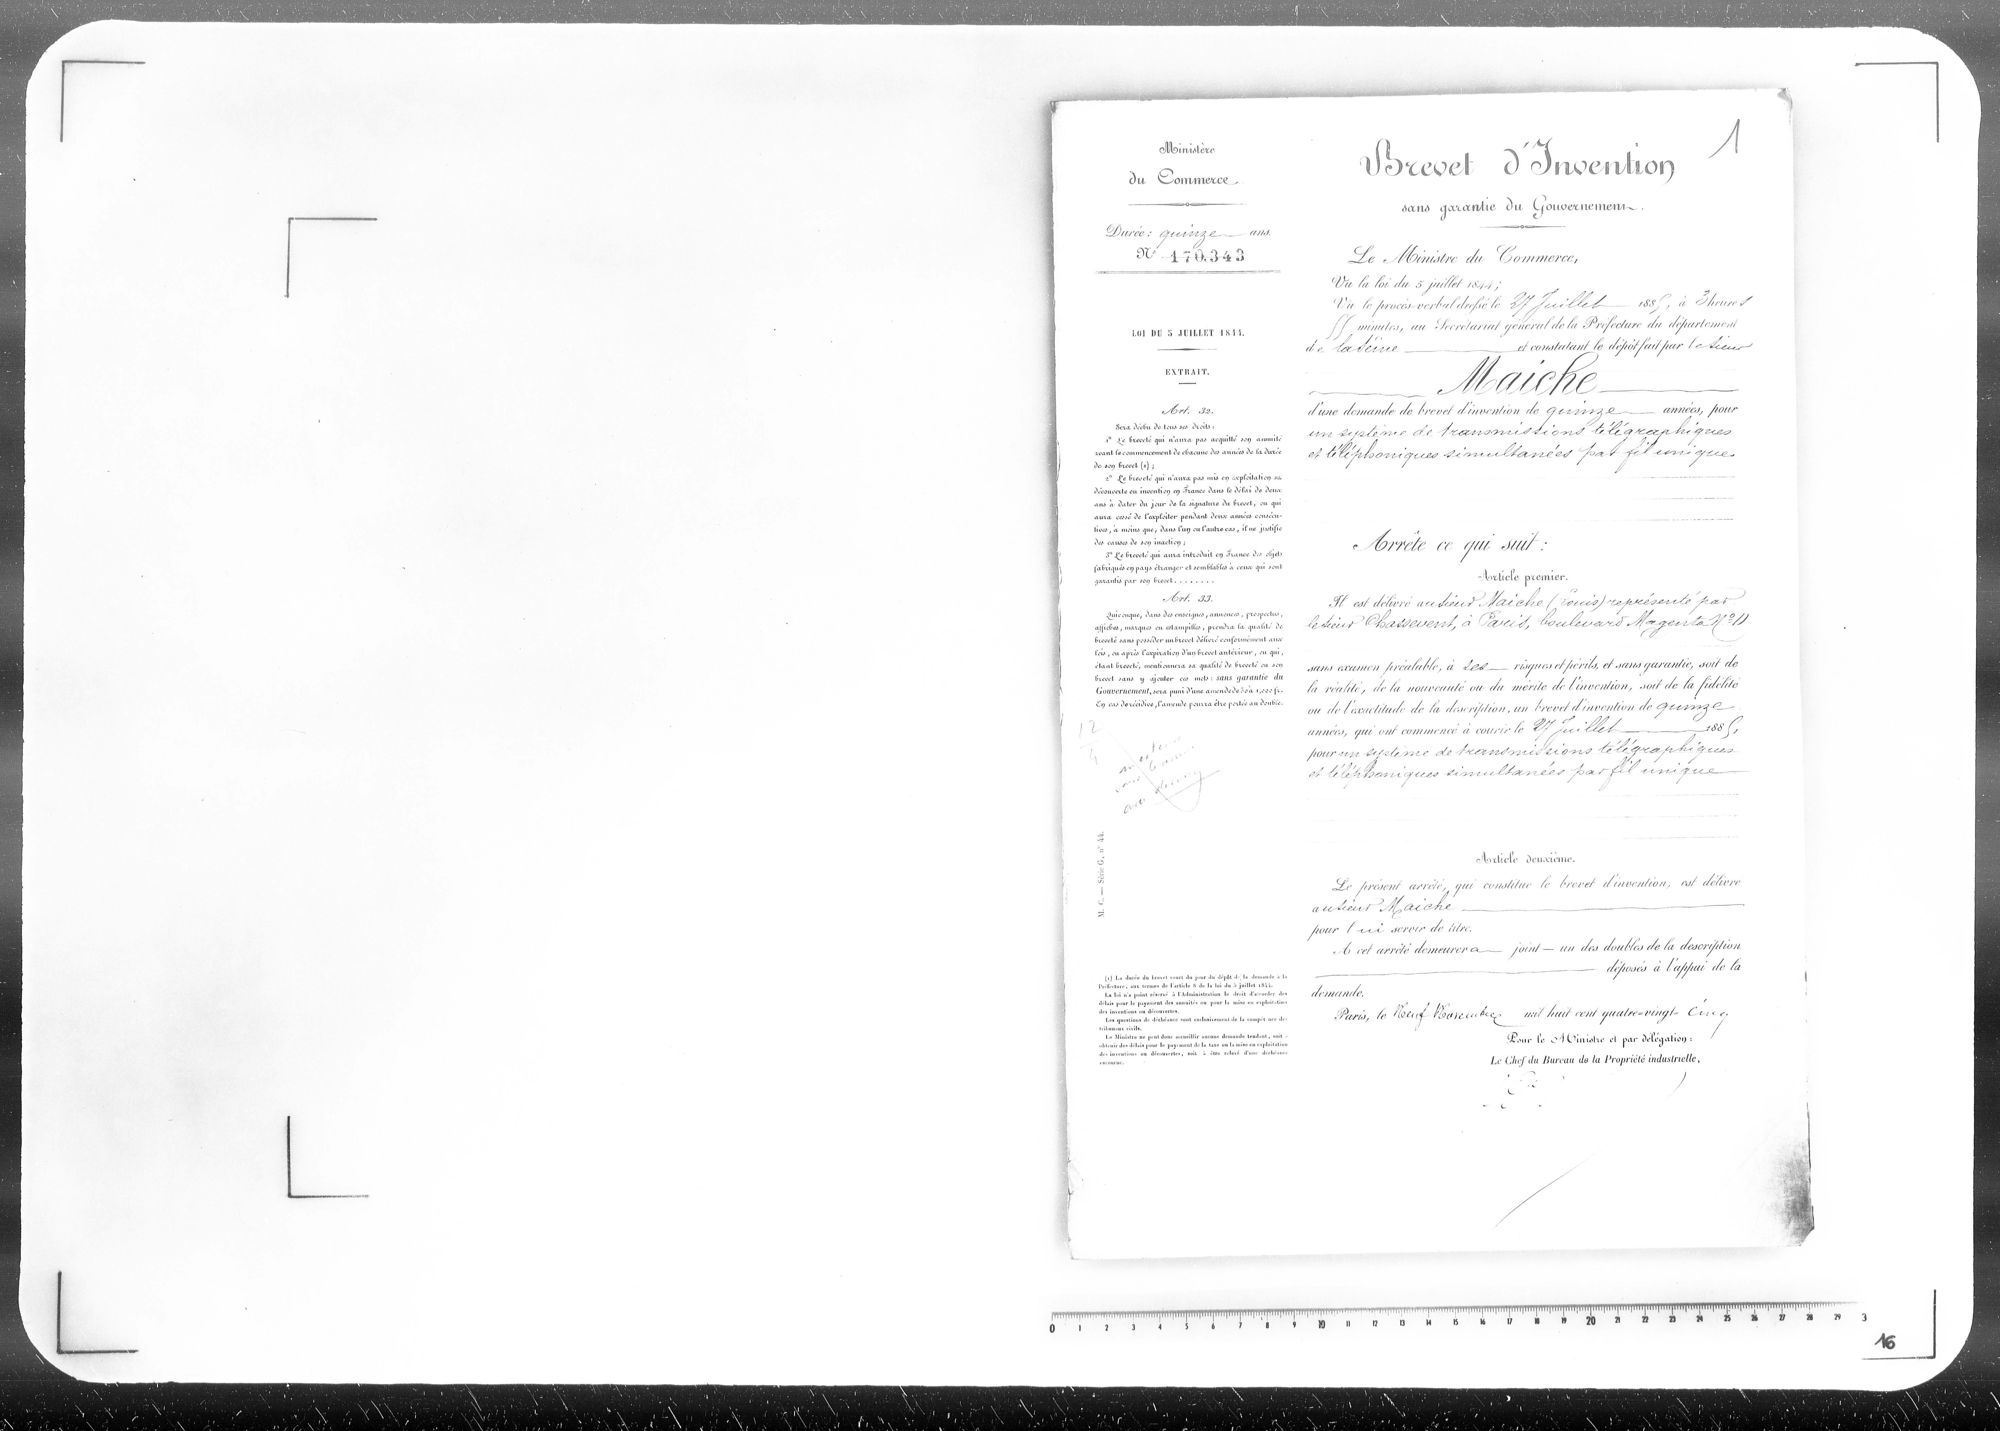 1
Ministère
du Commerce.
Durée: quinze ans.
N° 170.343
LOI DU 5 JUILLET 1844.
EXTRAIT.
Art. 32.
Sera déchu de tous ses droits:
1° Le breveté qui n'aura pas acquitté son annuité
avant le commencement de chacune des années de la durée
de son brevet (1);
2° Le breveté qui n'aura pas mis en exploitation sa
découverte ou invention en France dans le délai de deux
ans à dater du jour de la signature du brevet, ou qui
aura cessé de l'exploiter pendant deux années consécu-
tives, à moins que, dans l'un ou l'autre cas, il ne justifie
des causes de son inaction;
3° Le breveté qui aura introduit en France des objets
fabriqués en pays étranger et semblables à ceux qui sont
garantis par son brevet........
Art. 33.
Quiconque, dans des enseignes, annonces, prospectus,
affiches, marques ou estampilles, prendra la qualité de
breveté sans posséder un brevet délivré conformément aux
lois, ou après l'expiration d'un brevet antérieur, ou qui,
étant breveté, mentionnera sa qualité de breveté ou son
brevet sans y ajouter ces mots: sans garantie du
Gouvernement, sera puni d'une amende de 50 à 1,000 fr.
En cas de récidive, l'amende pourra être portée au double.
12
4
M. C. — Série G, n° 44.
(1) La durée du brevet court du jour du dépôt de la demande à la
Préfecture, aux termes de l'article 8 de la loi du 5 juillet 1844.
La loi n'a point réservé à l'Administration le droit d'accorder des
délais pour le payement des annuités ou pour la mise en exploitation
des inventions ou découvertes.
Les questions de déchéance sont exclusivement de la compétence des
tribunaux civils.
Le Ministre ne peut donc accueillir aucune demande tendant, soit à
obtenir des délais pour le payement de la taxe ou la mise en exploitation
des inventions ou découvertes, soit à être relevé d'une déchéance
encourue.
Brevet d'Invention
sans garantie du Gouvernement.
Le Ministre du Commerce,
Vu la loi du 5 juillet 1844;
Vu le procès-verbal dressé le 27 Juillet 1885, à 3 heures
55 minutes, au Secrétariat général de la Préfecture du département
de la Seine et constatant le dépôt fait par le sieur
Maiche
d'une demande de brevet d'invention de quinze années, pour
un système de transmissions télégraphiques
et téléphoniques simultanées par fil unique.
Arrête ce qui suit:
Article premier.
Il est délivré au sieur Maiche (Louis) représenté par
le sieur Chassevent, à Paris, boulevard Magenta N° 11
sans examen préalable, à ses risques et périls, et sans garantie, soit de
la réalité, de la nouveauté ou du mérite de l'invention, soit de la fidélité
ou de l'exactitude de la description, un brevet d'invention de quinze
années, qui ont commencé à courir le 27 Juillet 1885,
pour un système de transmissions télégraphiques
et téléphoniques simultanées par fil unique
Article deuxième.
Le présent arrêté, qui constitue le brevet d'invention, est délivré
au sieur Maiche
pour lui servir de titre.
A cet arrêté demeurera joint un des doubles de la description
déposés à l'appui de la
demande.
Paris, le Neuf Novembre mil huit cent quatre-vingt-cinq
Pour le Ministre et par délégation:
Le Chef du Bureau de la Propriété industrielle,
0 1 2 3 4 5 6 7 8 9 10 11 12 13 14 15 16 17 18 19 20 21 22 23 24 25 26 27 28 29 3
16